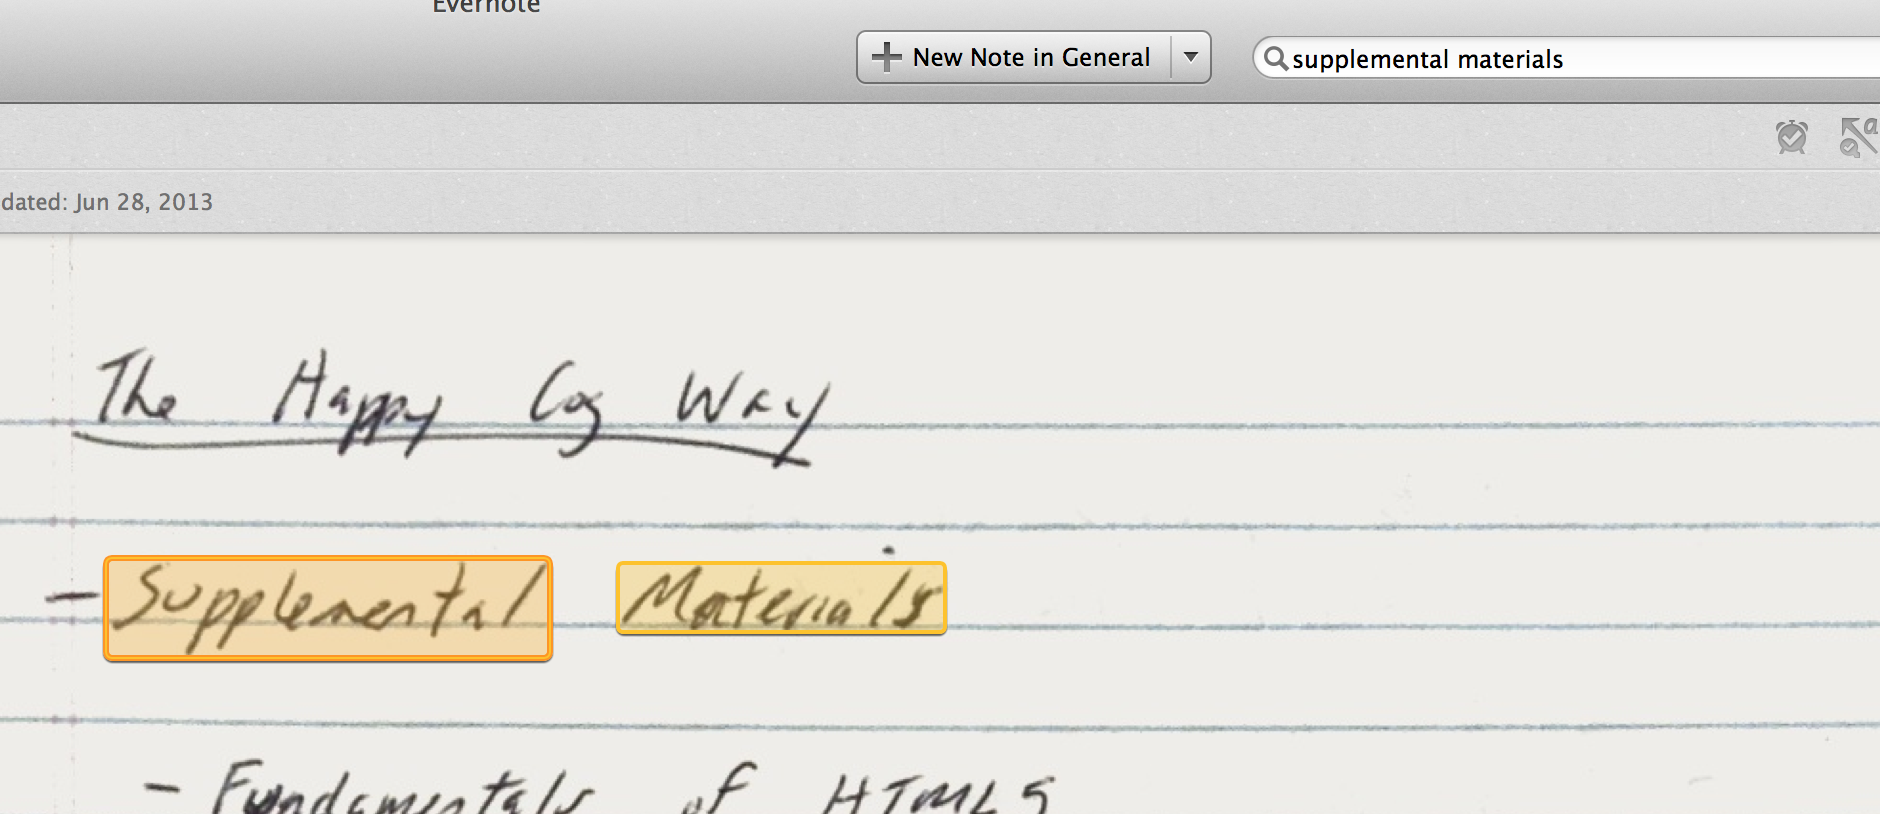 Evernote
New Note in General
supplemental materials
dated: Jun 28, 2013
The Happy Cog Way
- Supplemental Materials
- Fundamentals of HTML5